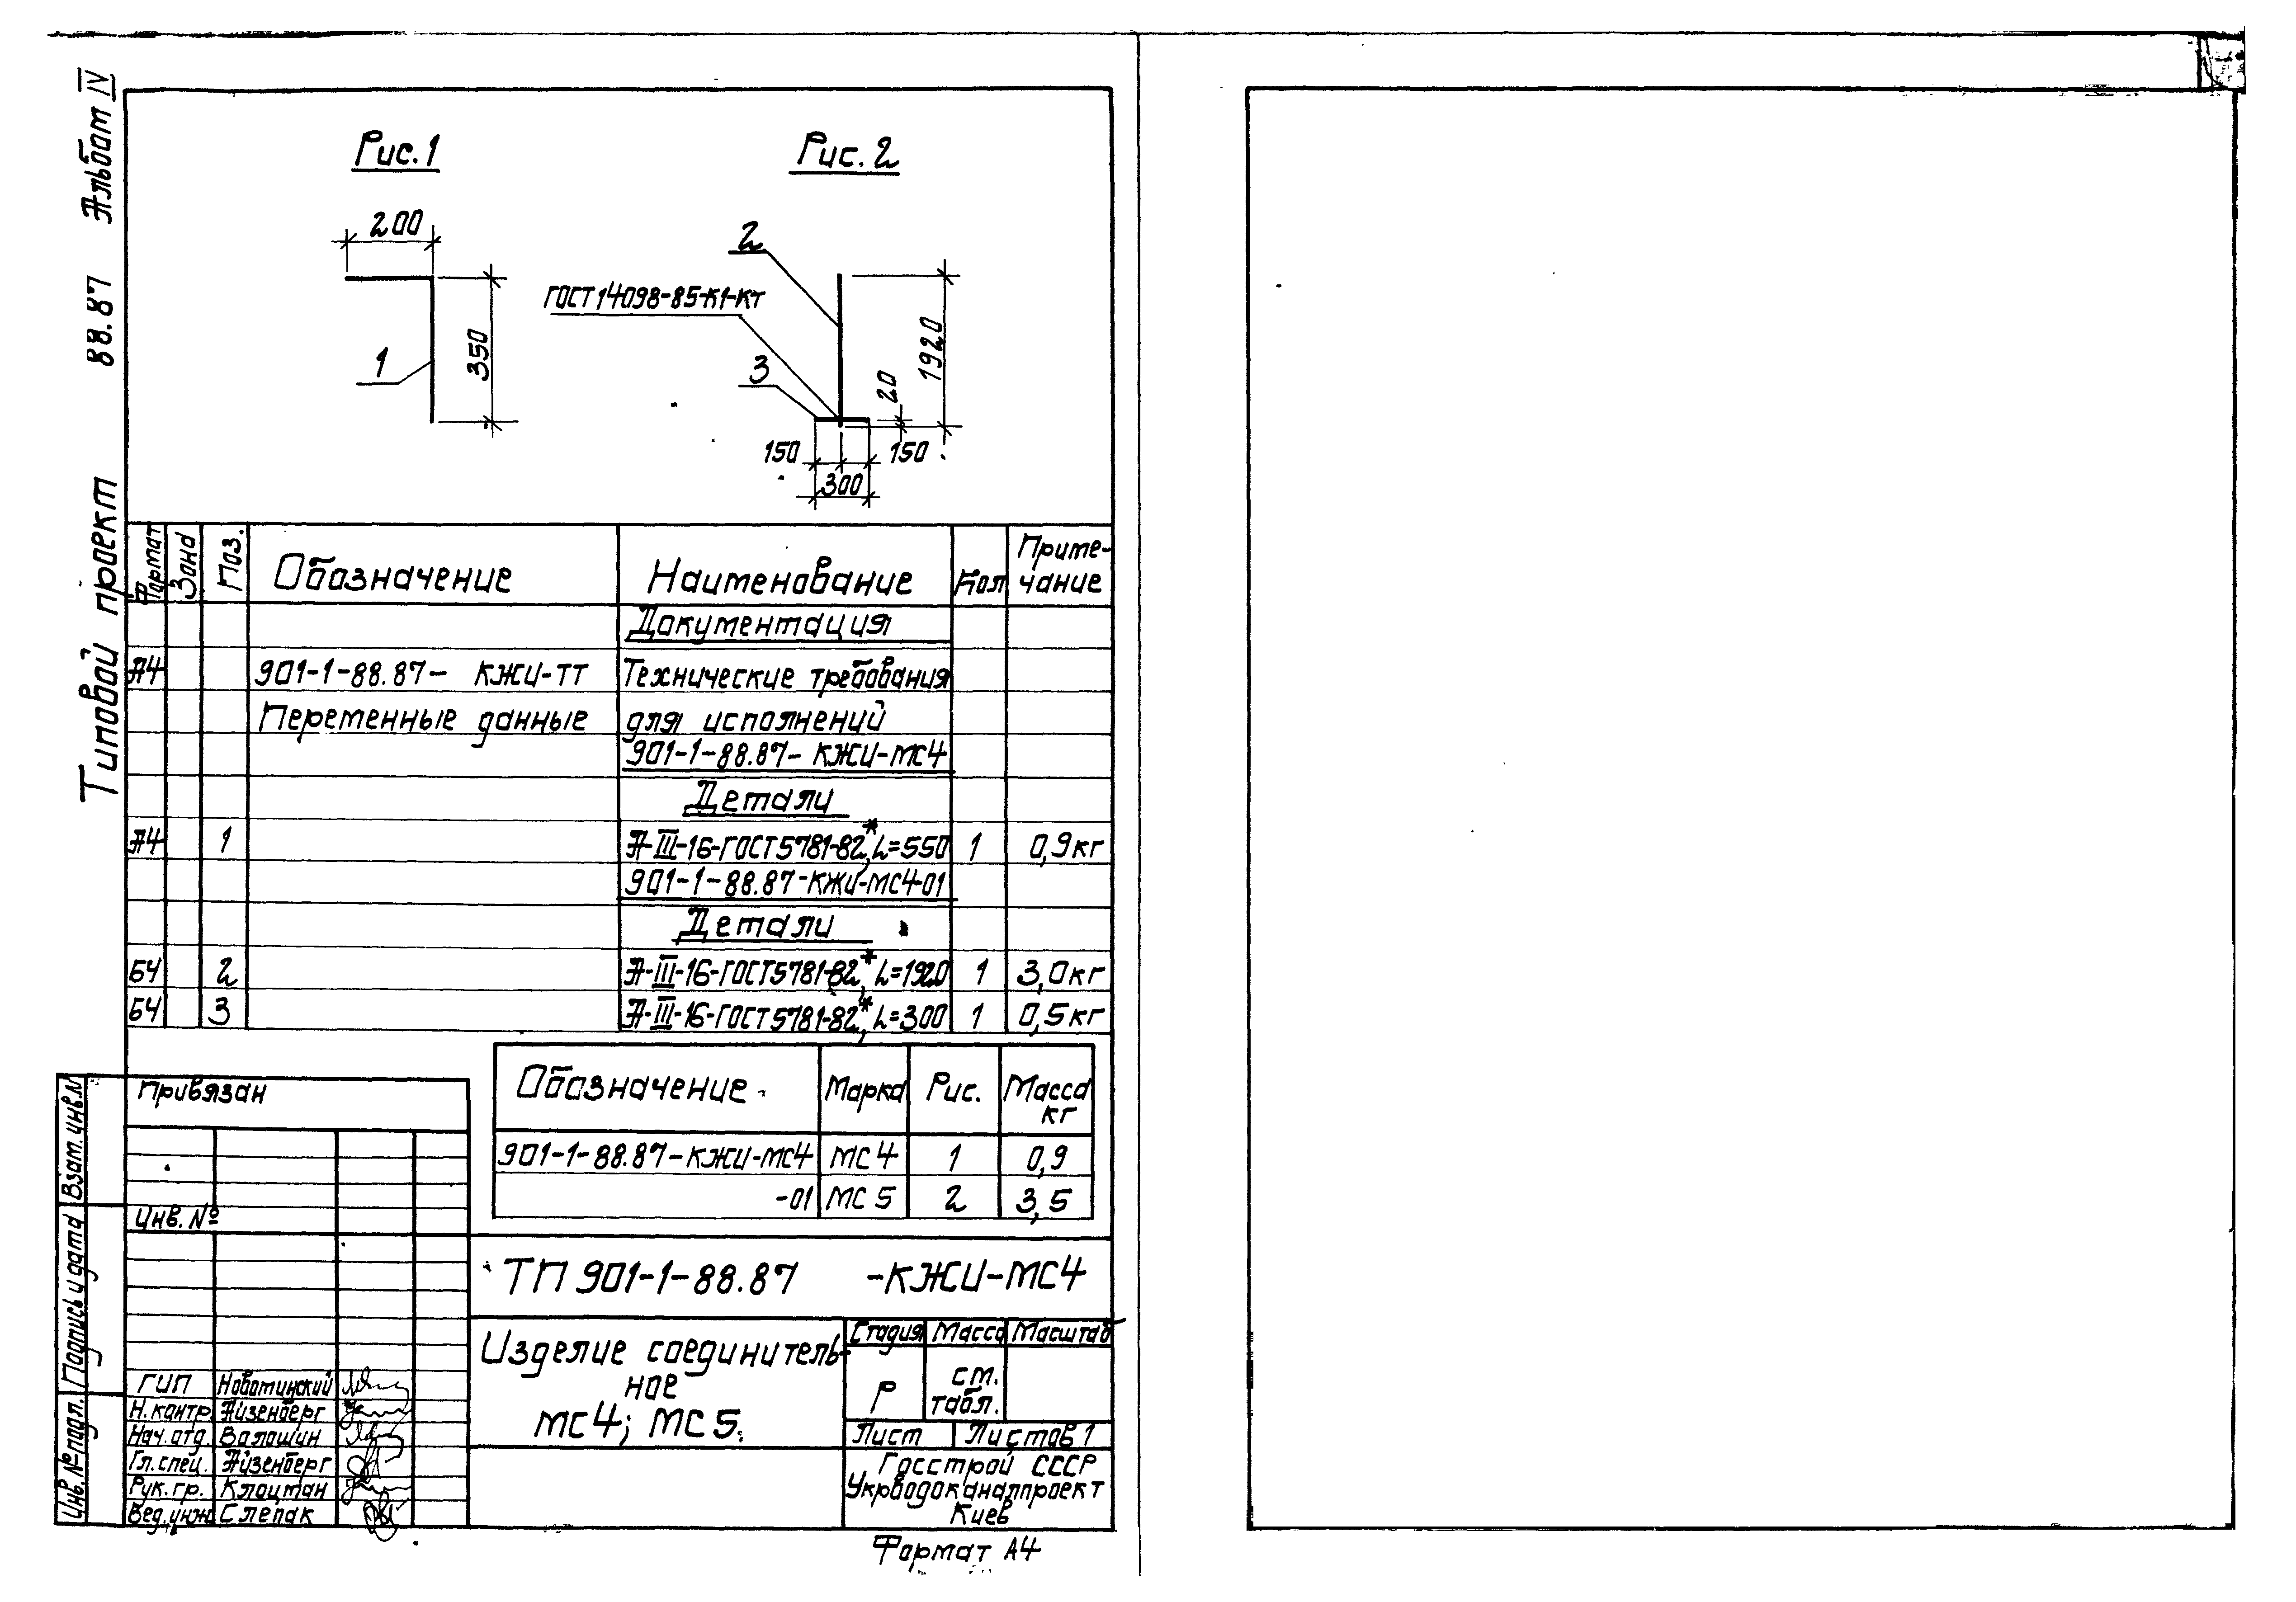 Типовой проект 88.87 Альбом IV
Рис.1
Рис. 2
200
350
1
2
ГОСТ14098-85-К1-Кт
3
1920
20
150
150
300
Формат
Зона
Поз.
Обозначение
Наименование
Кол
Приме-
чание
Документация
А4 901-1-88.87- КЖИ-ТТ Технические требования
Переменные данные для исполнений
901-1-88.87- КЖИ-МС4
Детали
А4 1 А-III-16-ГОСТ5781-82*, L=550 1 0,9кг
901-1-88.87-КЖИ-МС4-01
Детали
Б4 2 А-III-16-ГОСТ5781-82*, L=1920 1 3,0кг
Б4 3 А-III-16-ГОСТ5781-82*, L=300 1 0,5кг
Обозначение Марка Рис. Масса
кг
901-1-88.87-КЖИ-МС4 МС4 1 0,9
-01 МС5 2 3,5
Привязан
Инв. №
Взам. инв.N
Подпись и дата
Инв. № подл.
ТП 901-1-88.87 -КЖИ-МС4
Изделие соединитель-
ное
МС4; МС5.
Стадия Масса Масштаб
Р
см.
табл.
Лист Листов 1
Госстрой СССР
Укрводоканалпроект
Киев
ГИП Новотинский
Н.контр. Айзенберг
Нач.отд. Волошин
Гл.спец. Айзенберг
Рук.гр. Клоцман
Вед.инж Слепак
Формат А4